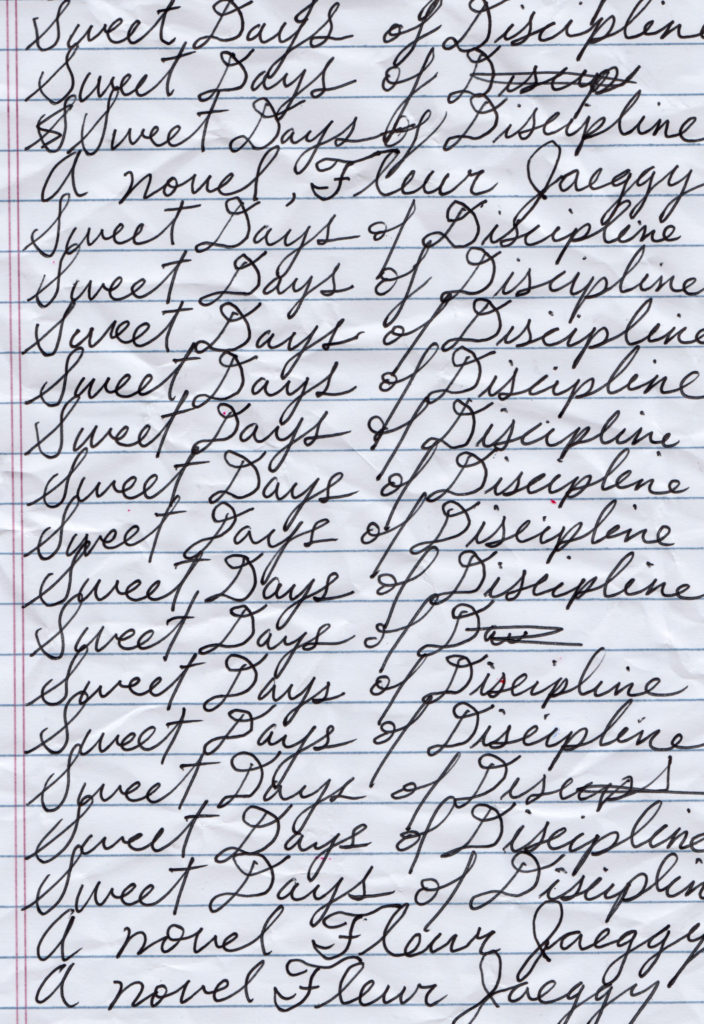 Sweet Days of Discipline
Sweet Days of Discip
S Sweet Days of Discipline
A novel, Fleur Jaeggy
Sweet Days of Discipline
Sweet Days of Discipline
Sweet Days of Discipline
Sweet Days of Discipline
Sweet Days of Discipline
Sweet Days of Discipline
Sweet Days of Discipline
Sweet Days of Discipline
Sweet Days of D
Sweet Days of Discipline
Sweet Days of Discipline
Sweet Days of Discip
Sweet Days of Discipline
Sweet Days of Disciplin
A novel Fleur Jaeggy
A novel Fleur Jaeggy